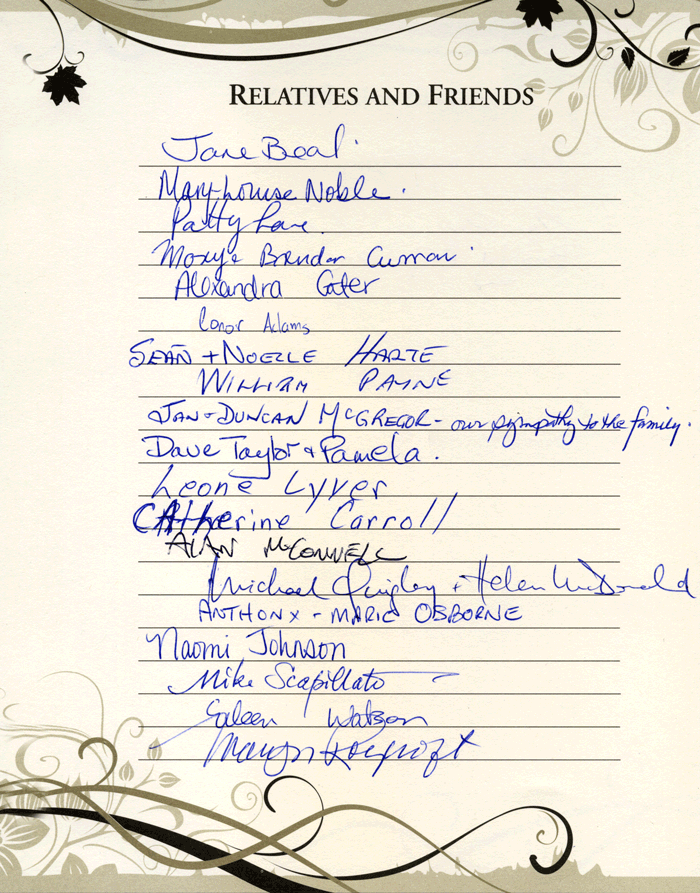 RELATIVES AND FRIENDS
Jane Beal
Mary-Louise Noble.
Patty Lane.
Brendan Curran
Alexandra Cater
Conor Adams
SEAN + NOELLE HARTE
WILLIAM PAYNE
JAN & DUNCAN MCGREGOR - our sympathy to the family.
Dave Taylor & Pamela.
Leone Lyver
CAtherine Carroll
ALAN McCONNELL
Michael Quigley + Helen McDonald
ANTHONY - MARIE OSBORNE
Naomi Johnson
Mike Scapillato
Eileen Watson